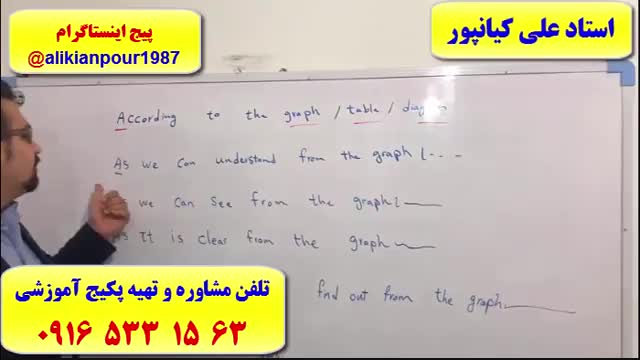 پیج اینستاگرام
@alikianpour1987
استاد علی کیانپور
According to the graph / table / diagram
As we can understand from the graph ...
As we can see from the graph
As It is clear from the graph
find out from the graph
تلفن مشاوره و تهیه پکیج آموزشی
۰۹۱۶ ۵۳۳ ۱۵ ۶۳